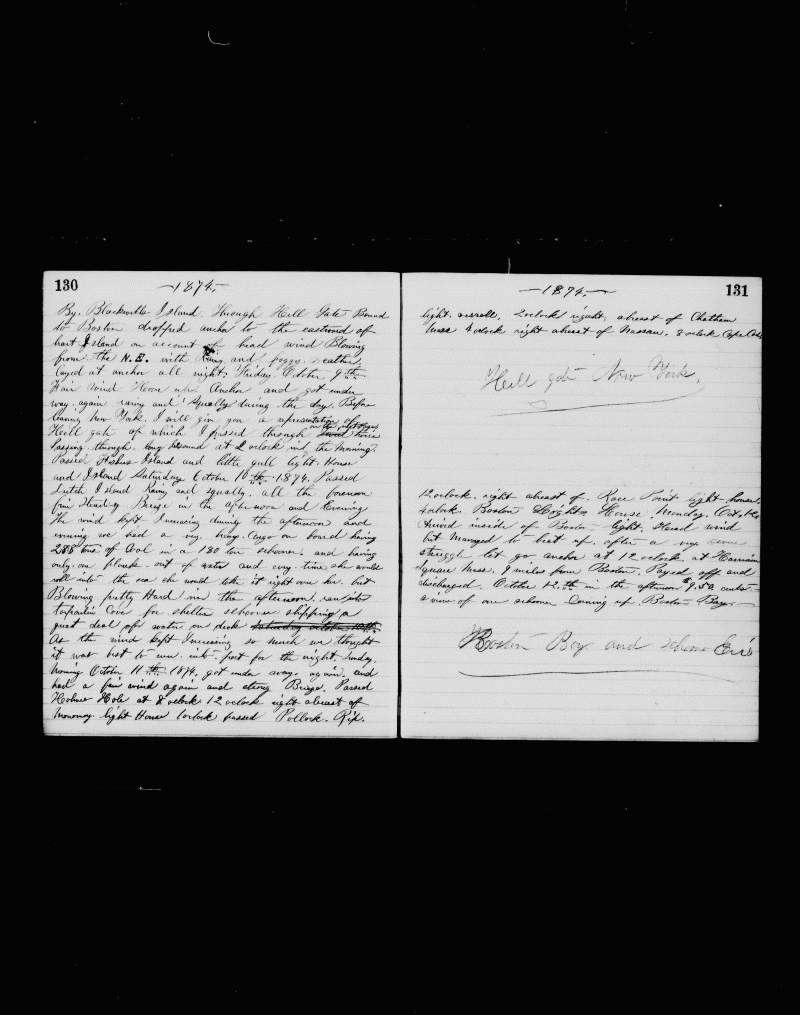 130
—1874,—
By. Blackwells Island. Through Hell Gate Bound
to Boston dropped anchor to the eastward of
hart Island on account of head wind Blowing
from the N.E. with Rainy and foggy weather
layed at anchor all night, Friday October 9th
Fair Wind Hove up Anchor and got under
way again rainy and Squally during the day. Before
leaving New York. I will give you a representation of
Hell gate of which I passed through
Passing through. Long Sound at 2 oclock in the Morning.
Passed Fishers Island and little gull light House
and Island Saturday October 10th 1874. Passed
Dutch Island Rainy and squally. all the forenoon
fine Steady Breze in the afternoon and Evening
The wind kept Increasing during the afternoon and
evening we had a very heavy Cargo on board having
288 tons of Coal in a 180 ton schooner. and having
only one plank out of water and every time she would
roll into the sea she would take it right over her. but
Blowing pretty Hard in the afternoon. ran into
tarpaulin Cove for shelter schooner shipping a
great deal of water on deck Saturday october 10th.
As the wind kept Increasing so much we thought
it was best to run into port for the night. Sunday.
Morning October 11th 1874, got under way. again. and
had a fair wind again and strong Breze. Passed
Holmes Hole at 8 oclock 12 oclock right abreast of
Monomoy light House 1oclock passed Pollock. Rip.
—1874,—
131
light. vessell, 2oclock right abreast of Chatham
Mass 4 oclock right abreast of Nassau. 8 oclock Cape Cod
Hell gate New York,
12oclock. right abreast of. Race Point light house,
4oclock Boston Heights House. Monday. Oct. 12
Arrived inside of Boston light. Head wind
but Managed to beat up. after a very
struggle let go anchor at 12 oclock at
Square Mass. 9 miles from Boston. Payed off and
discharged. October 12th in the afternoon $9.50 cents—
a view of our schooner Coming up Boston Bay.—
Boston Bay and schooner